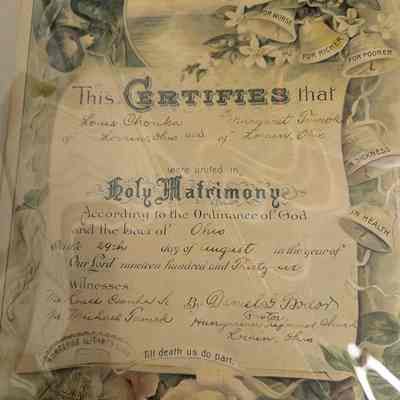 FOR WORSE
FOR RICHER
FOR POORER
This CERTIFIES that
Louis Chonka Margaret Tamok
of Lorain, Ohio and of Lorain, Ohio
were united in
Holy Matrimony
According to the Ordinance of God
and the laws of Ohio
29th day of August in the year of
Our Lord nineteen hundred and Thirty six
IN SICKNESS
IN HEALTH
Witnesses
By
Michael Tamok Pastor
Hungarian Reformed Church
Lorain, Ohio
Till death us do part.